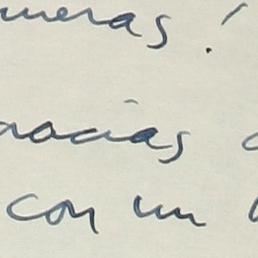 meras!
racias
con un